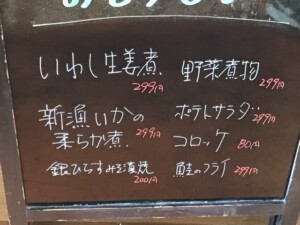 いわし生姜煮
299円
野菜煮物
299円
新漁いかの
柔らか煮
299円
ポテトサラダ
299円
コロッケ
80円
銀ひらすみそ漬焼
200円
鮭のフライ
299円